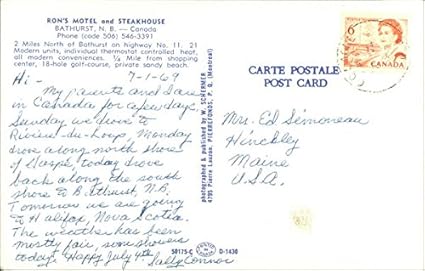 RON'S MOTEL and STEAKHOUSE
BATHURST, N. B. — Canada
Phone (code 506) 546-3391
2 Miles North of Bathurst on highway No. 11. 21
Modern units, individual thermostat controlled heat,
all modern conveniences. ¼ Mile from shopping
center, 18-hole golf-course, private sandy beach.
Hi - 7-1-69
My parents and I are
in Canada for a few days.
Sunday we drove to
Rivière-du-Loup, Monday
drove along north shore
of Gaspé, today drove
back along the south
shore to Bathurst, N.B.
Tomorrow we are going
to Halifax, Nova Scotia.
The weather has been
mostly fair, some showers
today. Happy July 4th. Sally Connor
photographed & published by W. SCHERMER
4795 Pierre Lauzon, PIERREFONDS, P. Q. (Montreal)
58175-C D-1436
CARTE POSTALE
POST CARD
6
CANADA
Mrs. Ed Simoneau
Hinckley
Maine
U.S.A.